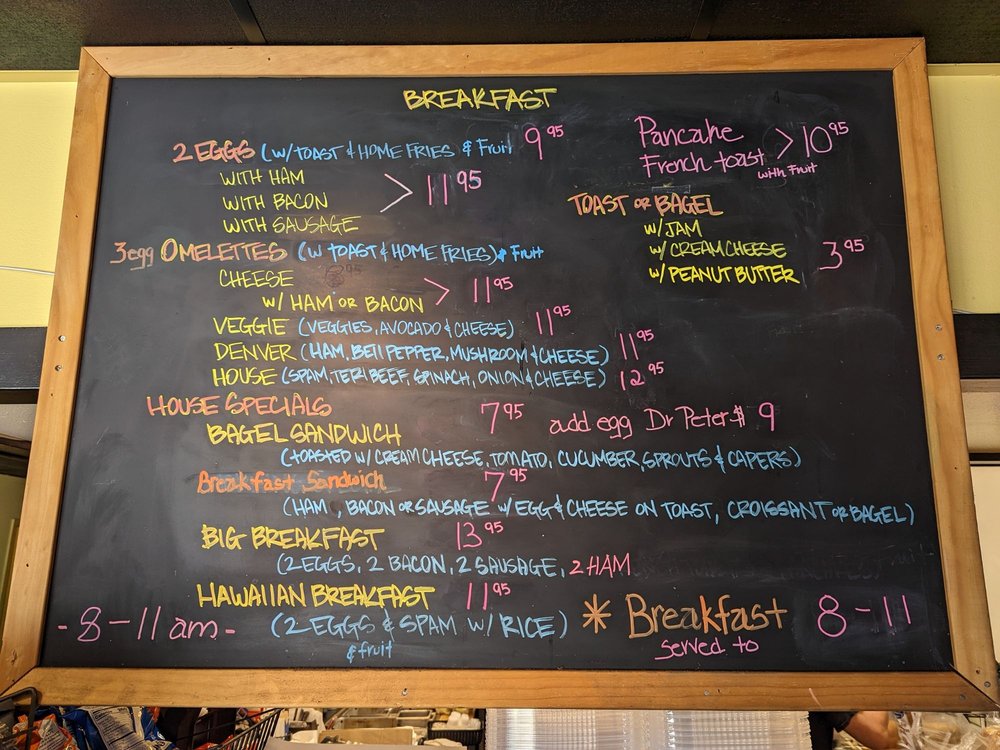 BREAKFAST
2 EGGS (W/TOAST & HOME FRIES & Fruit 9 95
WITH HAM
WITH BACON > 11 95
WITH SAUSAGE
3 egg OMELETTES (W TOAST & HOME FRIES) & Fruit
CHEESE
W/ HAM OR BACON > 11 95
VEGGIE (VEGGIES, AVOCADO & CHEESE) 11 95
DENVER (HAM, BELL PEPPER, MUSHROOM & CHEESE) 11 95
HOUSE (SPAM, TERI BEEF, SPINACH, ONION & CHEESE) 12 95
Pancake
French toast > 10 95
with Fruit
TOAST OR BAGEL
W/ JAM
W/ CREAM CHEESE 3 95
W/ PEANUT BUTTER
HOUSE SPECIALS
BAGEL SANDWICH 7 95 add egg Dr Peter $ 9
(TOASTED W/ CREAM CHEESE, TOMATO, CUCUMBER, SPROUTS & CAPERS)
Breakfast Sandwich 7 95
(HAM, BACON OR SAUSAGE W/ EGG & CHEESE ON TOAST, CROISSANT OR BAGEL)
BIG BREAKFAST 13 95
(2 EGGS, 2 BACON, 2 SAUSAGE, 2 HAM
HAWAIIAN BREAKFAST 11 95
(2 EGGS & SPAM W/ RICE)
& fruit
- 8 - 11 am -
* Breakfast 8 - 11
served to